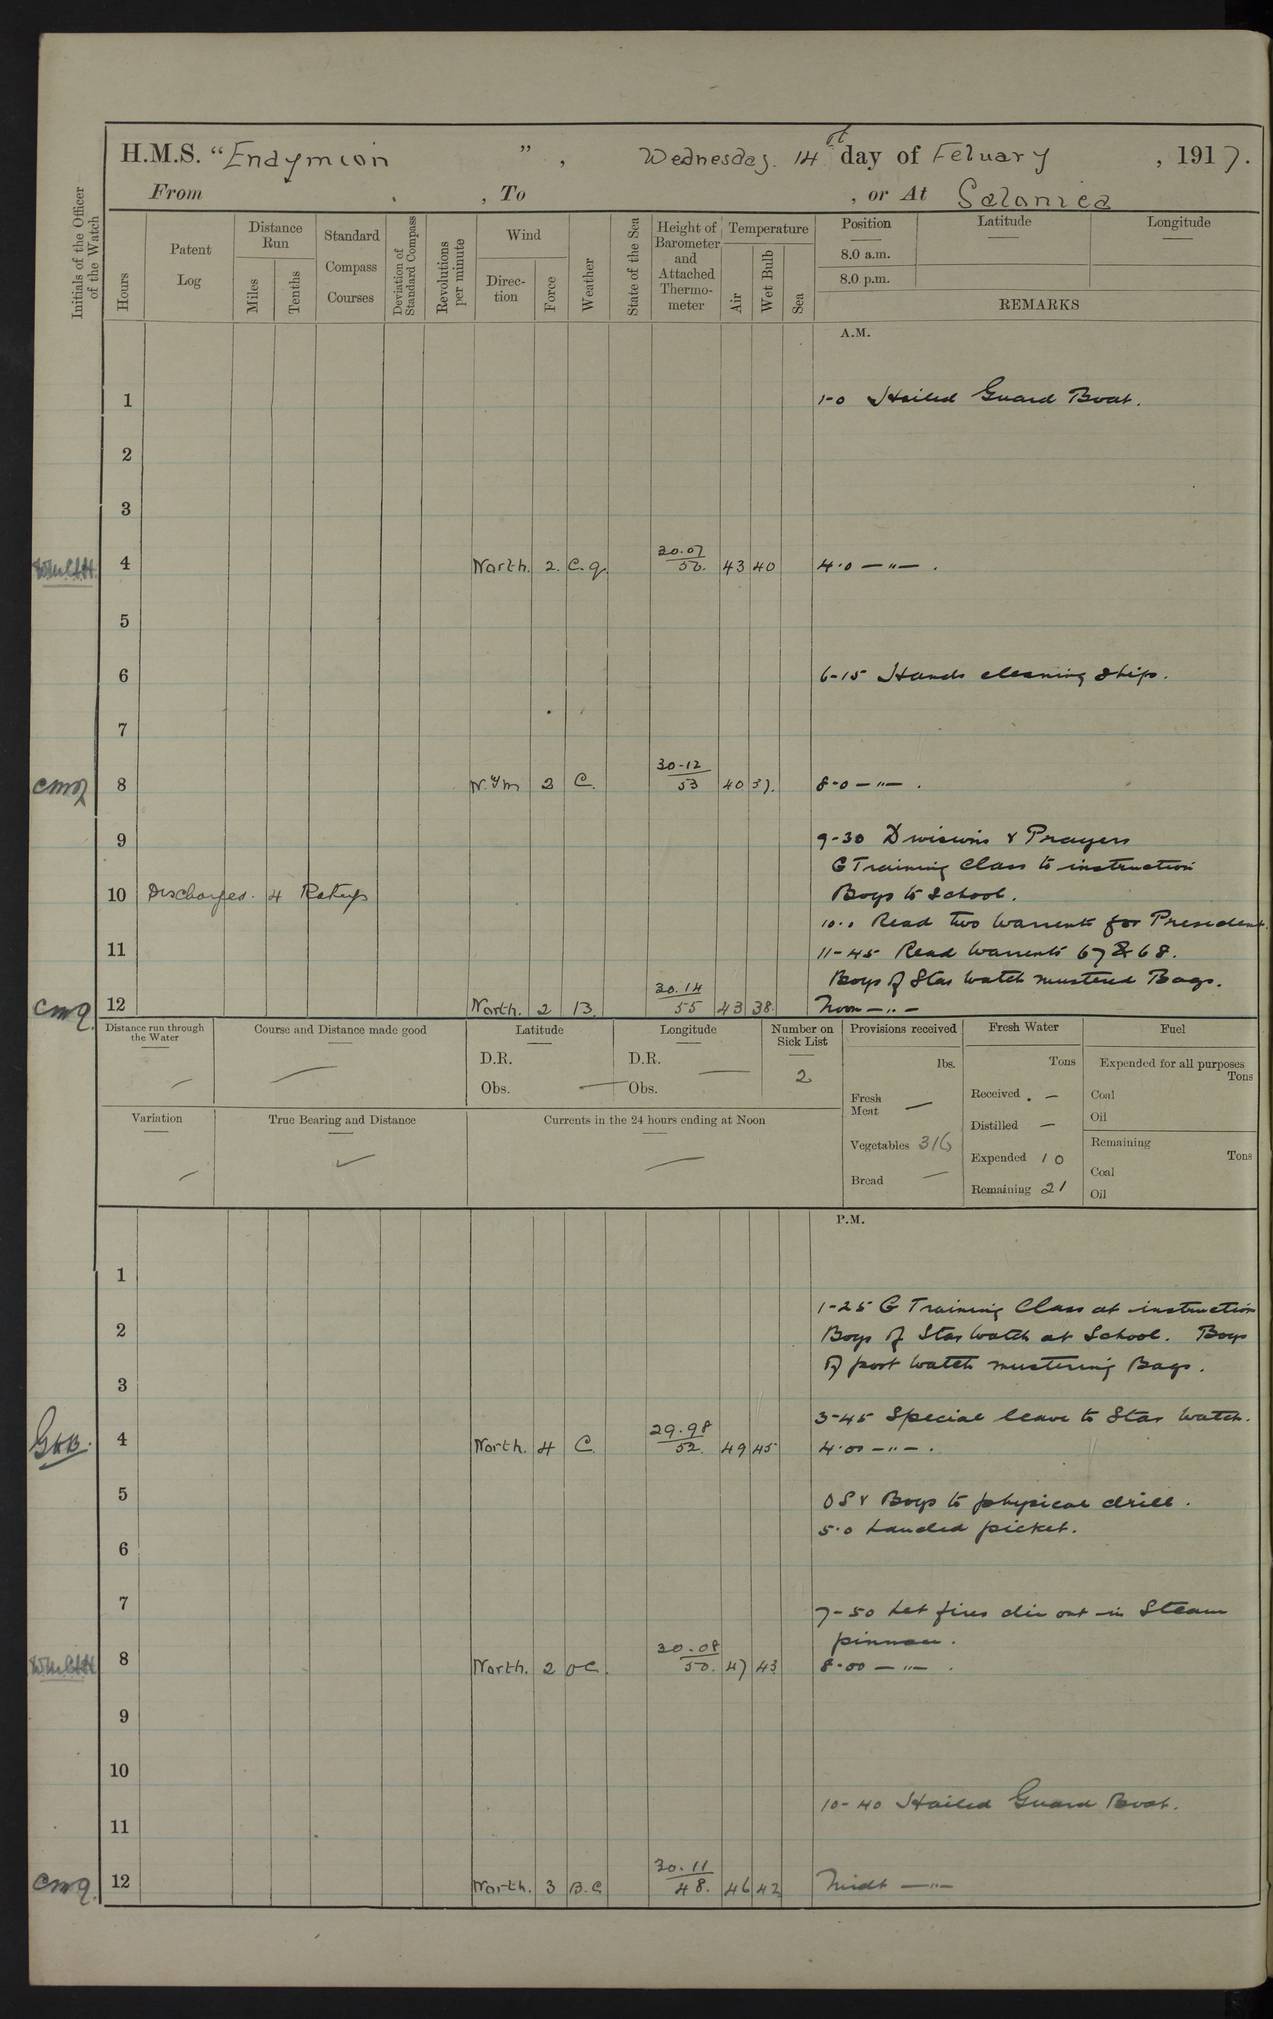 H.M.S. "Endymion", Wednesday. 14th day of Feluary, 1917.
From , To , or At Salonica
Initials of the Officer of the Watch
Hours
Patent Log
Distance Run
Miles
Tenths
Standard Compass Courses
Deviation of Standard Compass
Revolutions per minute
Wind
Direction
Force
Weather
State of the Sea
Height of Barometer and Attached Thermometer
Temperature
Air
Wet Bulb
Sea
Position
Latitude
Longitude
8.0 a.m.
8.0 p.m.
REMARKS
A.M.
1 1-0 Hailed Guard Boat.
2
3
4 North. 2. C.g. 30.07 50. 43 40 4.0 — " — .
5
6 6-15 Hands cleaning ship.
7
cmq 8 N.ym 2 C. 30-12 53 40 37. 8-0 — " — .
9 9-30 Divisions & Prayers
G Training Class to instruction
10 Discharged. 4 Ratings Boys to School.
10.0 Read two Warrents for President.
11 11-45 Read Warrents 67 & 68.
Boys of Star Watch mustered Bags.
cmq. 12 North. 2 B. 30.14 55 43 38. Noon — " —
Distance run through the Water
Course and Distance made good
Latitude
D.R.
Obs. —
Longitude
D.R. —
Obs.
Number on Sick List
2
Provisions received
lbs.
Fresh Meat —
Vegetables 316
Bread —
Fresh Water
Tons
Received . —
Distilled —
Expended 10
Remaining 21
Fuel
Expended for all purposes
Tons
Coal
Oil
Remaining
Tons
Coal
Oil
Variation
True Bearing and Distance
Currents in the 24 hours ending at Noon
P.M.
1
1-25 G Training Class at instruction
2 Boys of Star Watch at School. Boys
of port Watch mustering Bags.
3
3-45 Special leave to Star Watch.
GHB. 4 North. 4 C. 29.98 52. 49 45 4.00 — " — .
5 OS & Boys to physical drill.
5.0 Landed picket.
6
7 7-50 Let fires die out in Steam
pinnace.
8 North. 2 OC. 30.08 50. 47 43 8.00 — " — .
9
10
10-40 Hailed Guard Boat.
11
cmq. 12 North. 3 B.C. 30.11 48. 46 42 Midt — " —